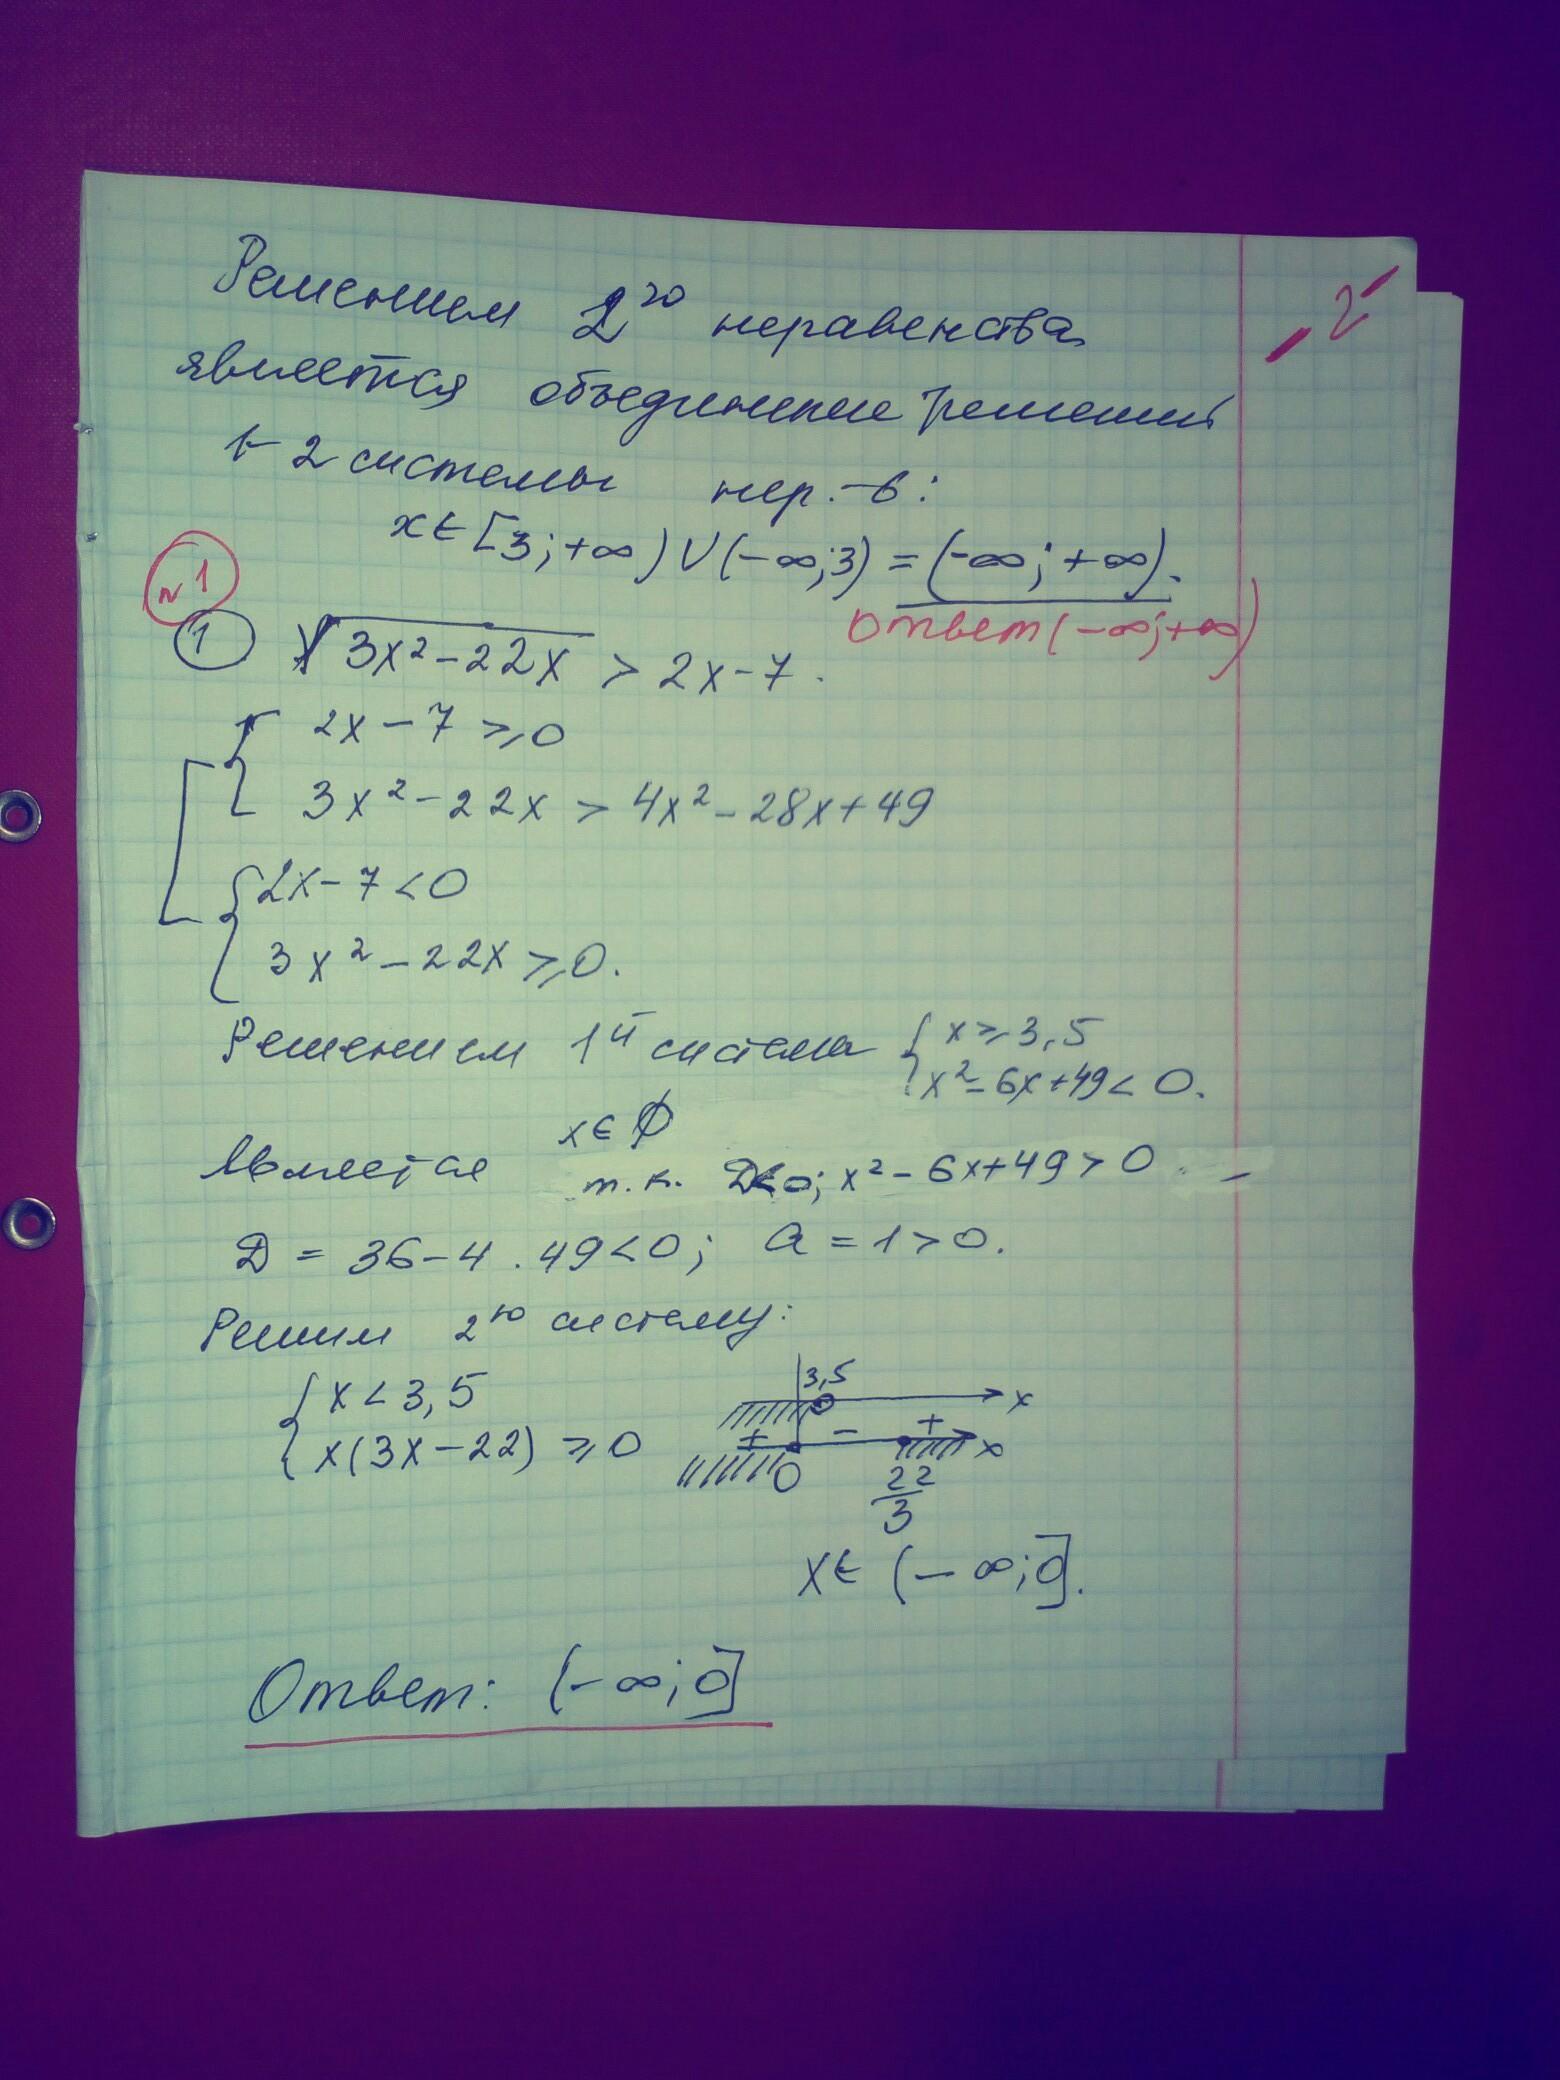 Решением 2го неравенства
является объединение решений
1-2 системы нер.-в:
x∈[3;+∞)∪(-∞;3)=(-∞;+∞).
Ответ(-∞;+∞)
n1
1 √3x²-22x > 2x-7.
2x-7≥0
3x²-22x > 4x²-28x+49
2x-7<0
3x²-22x≥0.
Решением 1й система x≥3,5
x²-6x+49<0.
x∈∅
является т.к. D<0; x²-6x+49>0
D = 36-4.49<0; a=1>0.
Решим 2ю систему:
x<3,5
x(3x-22)≥0
3,5 x
+ - + x
0 22/3
x∈(-∞;0].
Ответ: (-∞;0]